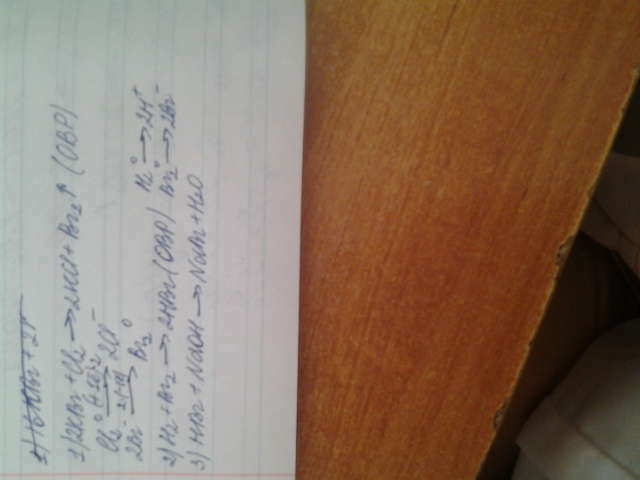 1) 2KBr + Cl₂ → 2KCl + Br₂↑ (ОВР)
Cl₂⁰ → 2Cl⁻
2Br⁻ → Br₂⁰
2) H₂ + Br₂ → 2HBr (ОВР) H₂⁰ → 2H⁺
Br₂⁰ → 2Br⁻
3) HBr + NaOH → NaBr + H₂O